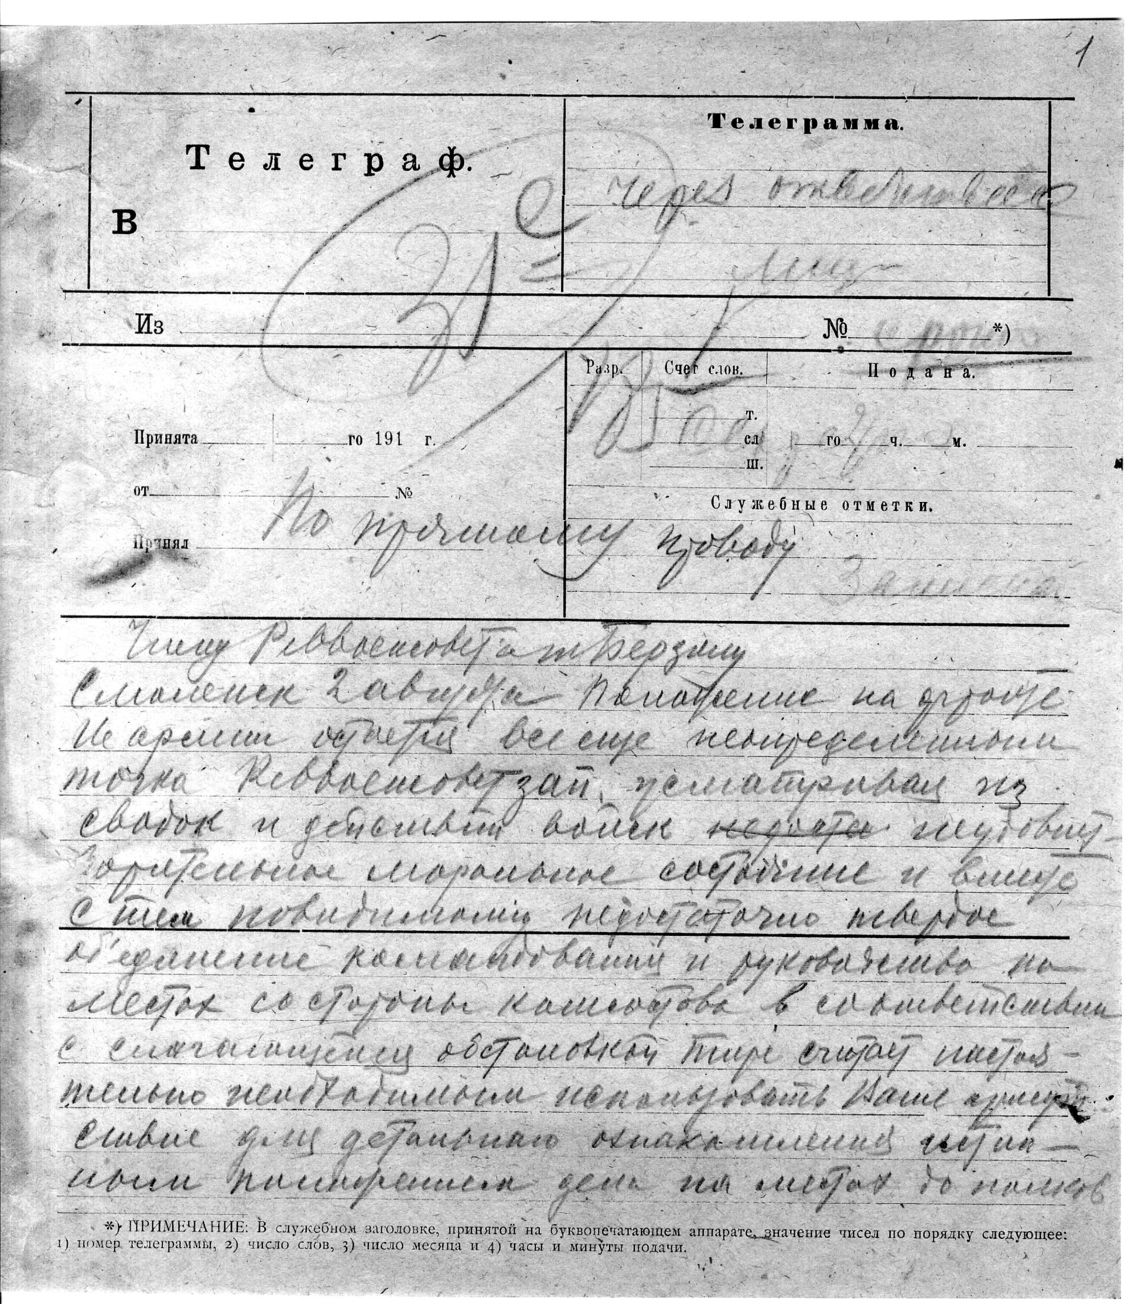 1
Телеграф.
Телеграмма.
В
через ответствен
лиц
Из
№ срочно *)
Разр. Счет слов. Подана.
Принята го 191 г.
т.
сл го ч. м.
ш.
от №
Служебные отметки.
Принял
По прямому проводу
Члену Реввоенсовета т Берзину
Смоленск 2 августа Положение на фронте
армии остается все еще неопределенным
точка Реввоенсовет зап. усматривая из
сводок и действий войск недоста неудовлет-
ворительное моральное состояние и вместе
с тем повидимому недостаточно твердое
об'единение командования и руководство на
местах со стороны комсостава в соответствии
с слагающейся обстановкой Тире считает настоя-
тельно необходимым использовать Ваше присут
ствие для детального ознакомления истин-
ным положением дела на местах до полков
*) ПРИМЕЧАНИЕ: В служебном заголовке, принятой на буквопечатающем аппарате, значение чисел по порядку следующее:
1) номер телеграммы, 2) число слов, 3) число месяца и 4) часы и минуты подачи.